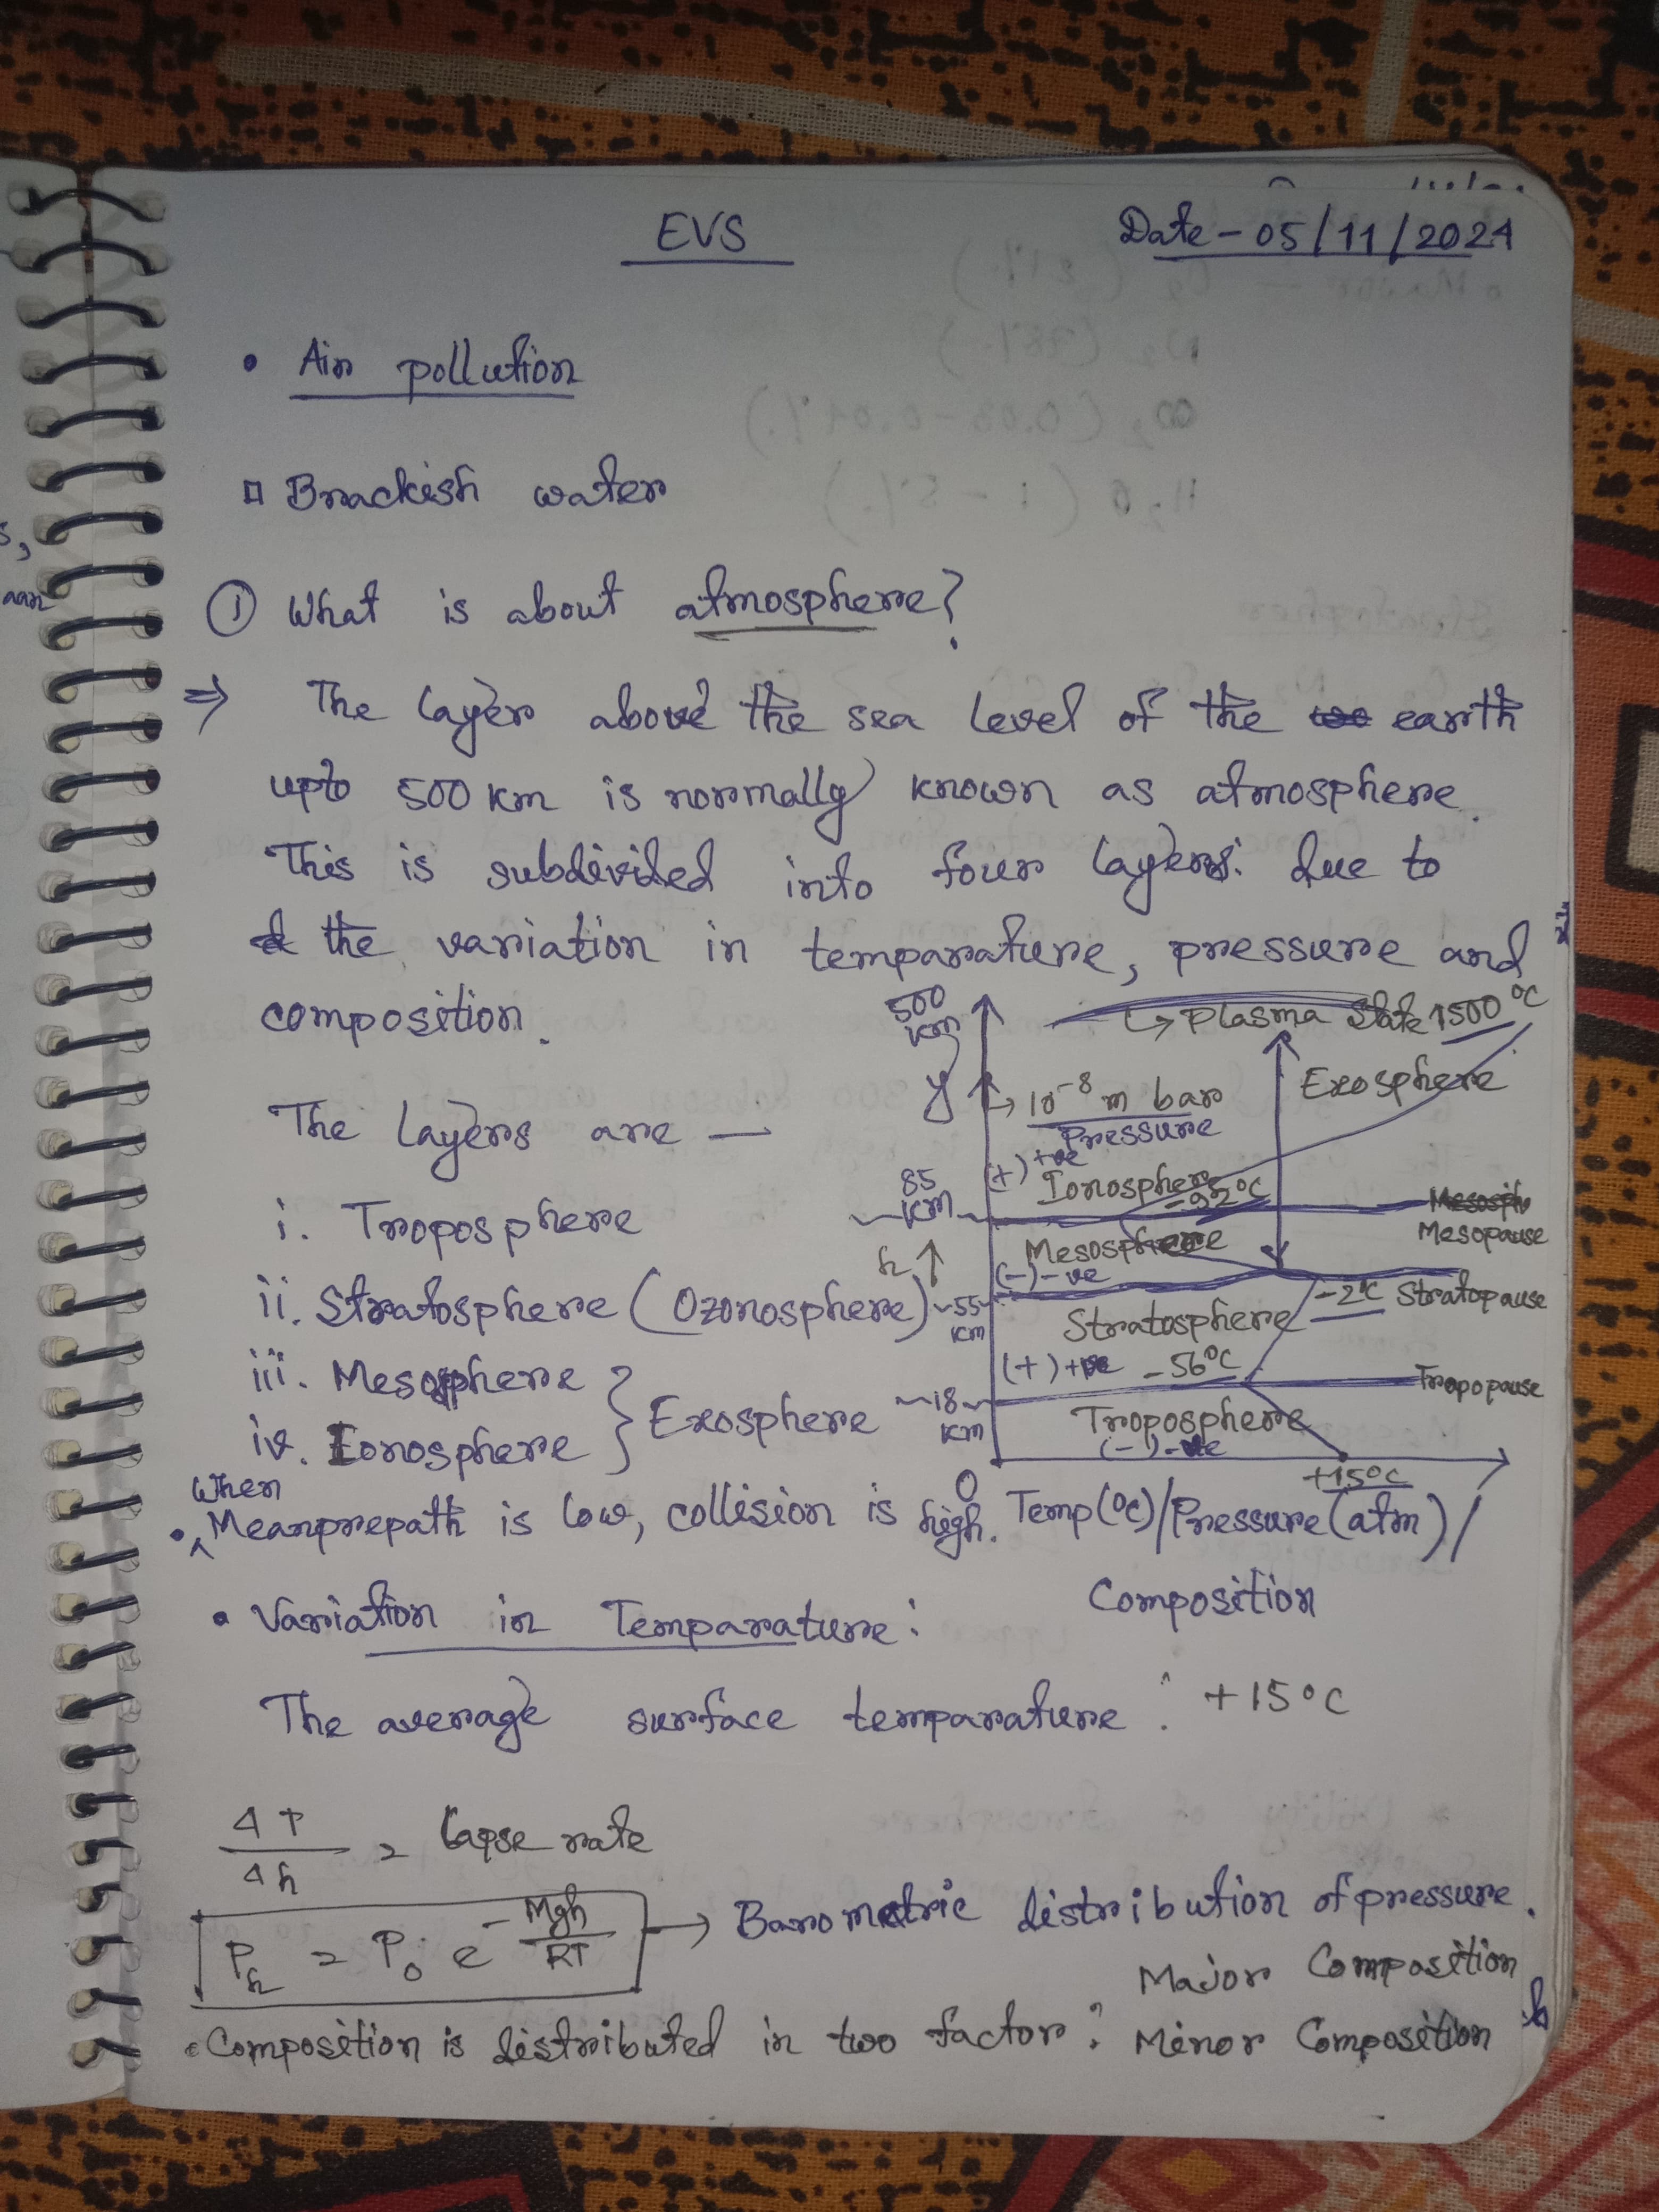 EVS
Date - 05/11/2024
• Air pollution
Brackish water
① What is about atmosphere?
⇒ The layer above the sea level of the earth
upto 500 km is normally known as atmosphere.
This is subdivided into four layers. due to
the variation in temparature, pressure and
composition.
The layers are —
i. Troposphere
ii. Stratosphere (Ozonosphere)
iii. Mesosphere
iv. Ionosphere } Exosphere
500 km
y
→ Plasma State 1500 °C
Exosphere
→ 10⁻⁸ m bar
Pressure
(+) +ve
85 km
Ionosphere
-92°C
Mesopause
h ↑
Mesosphere
(-) -ve
~55~ km
-2°C Stratopause
Stratosphere
(+) +ve -56°C
~18~ km
Tropopause
Troposphere
(-) -ve
0
+15°C
Temp (°C)/Pressure (atm)/
Composition
• When Meanprepath is low, collision is high.
• Variation in Temparature:
The average surface temparature : +15°C
ΔT/Δh = lapse rate
P_h = P_0 e^(-Mgh/RT) → Barometric distribution of pressure.
Major Composition
• Composition is distributed in two factor : Minor Composition